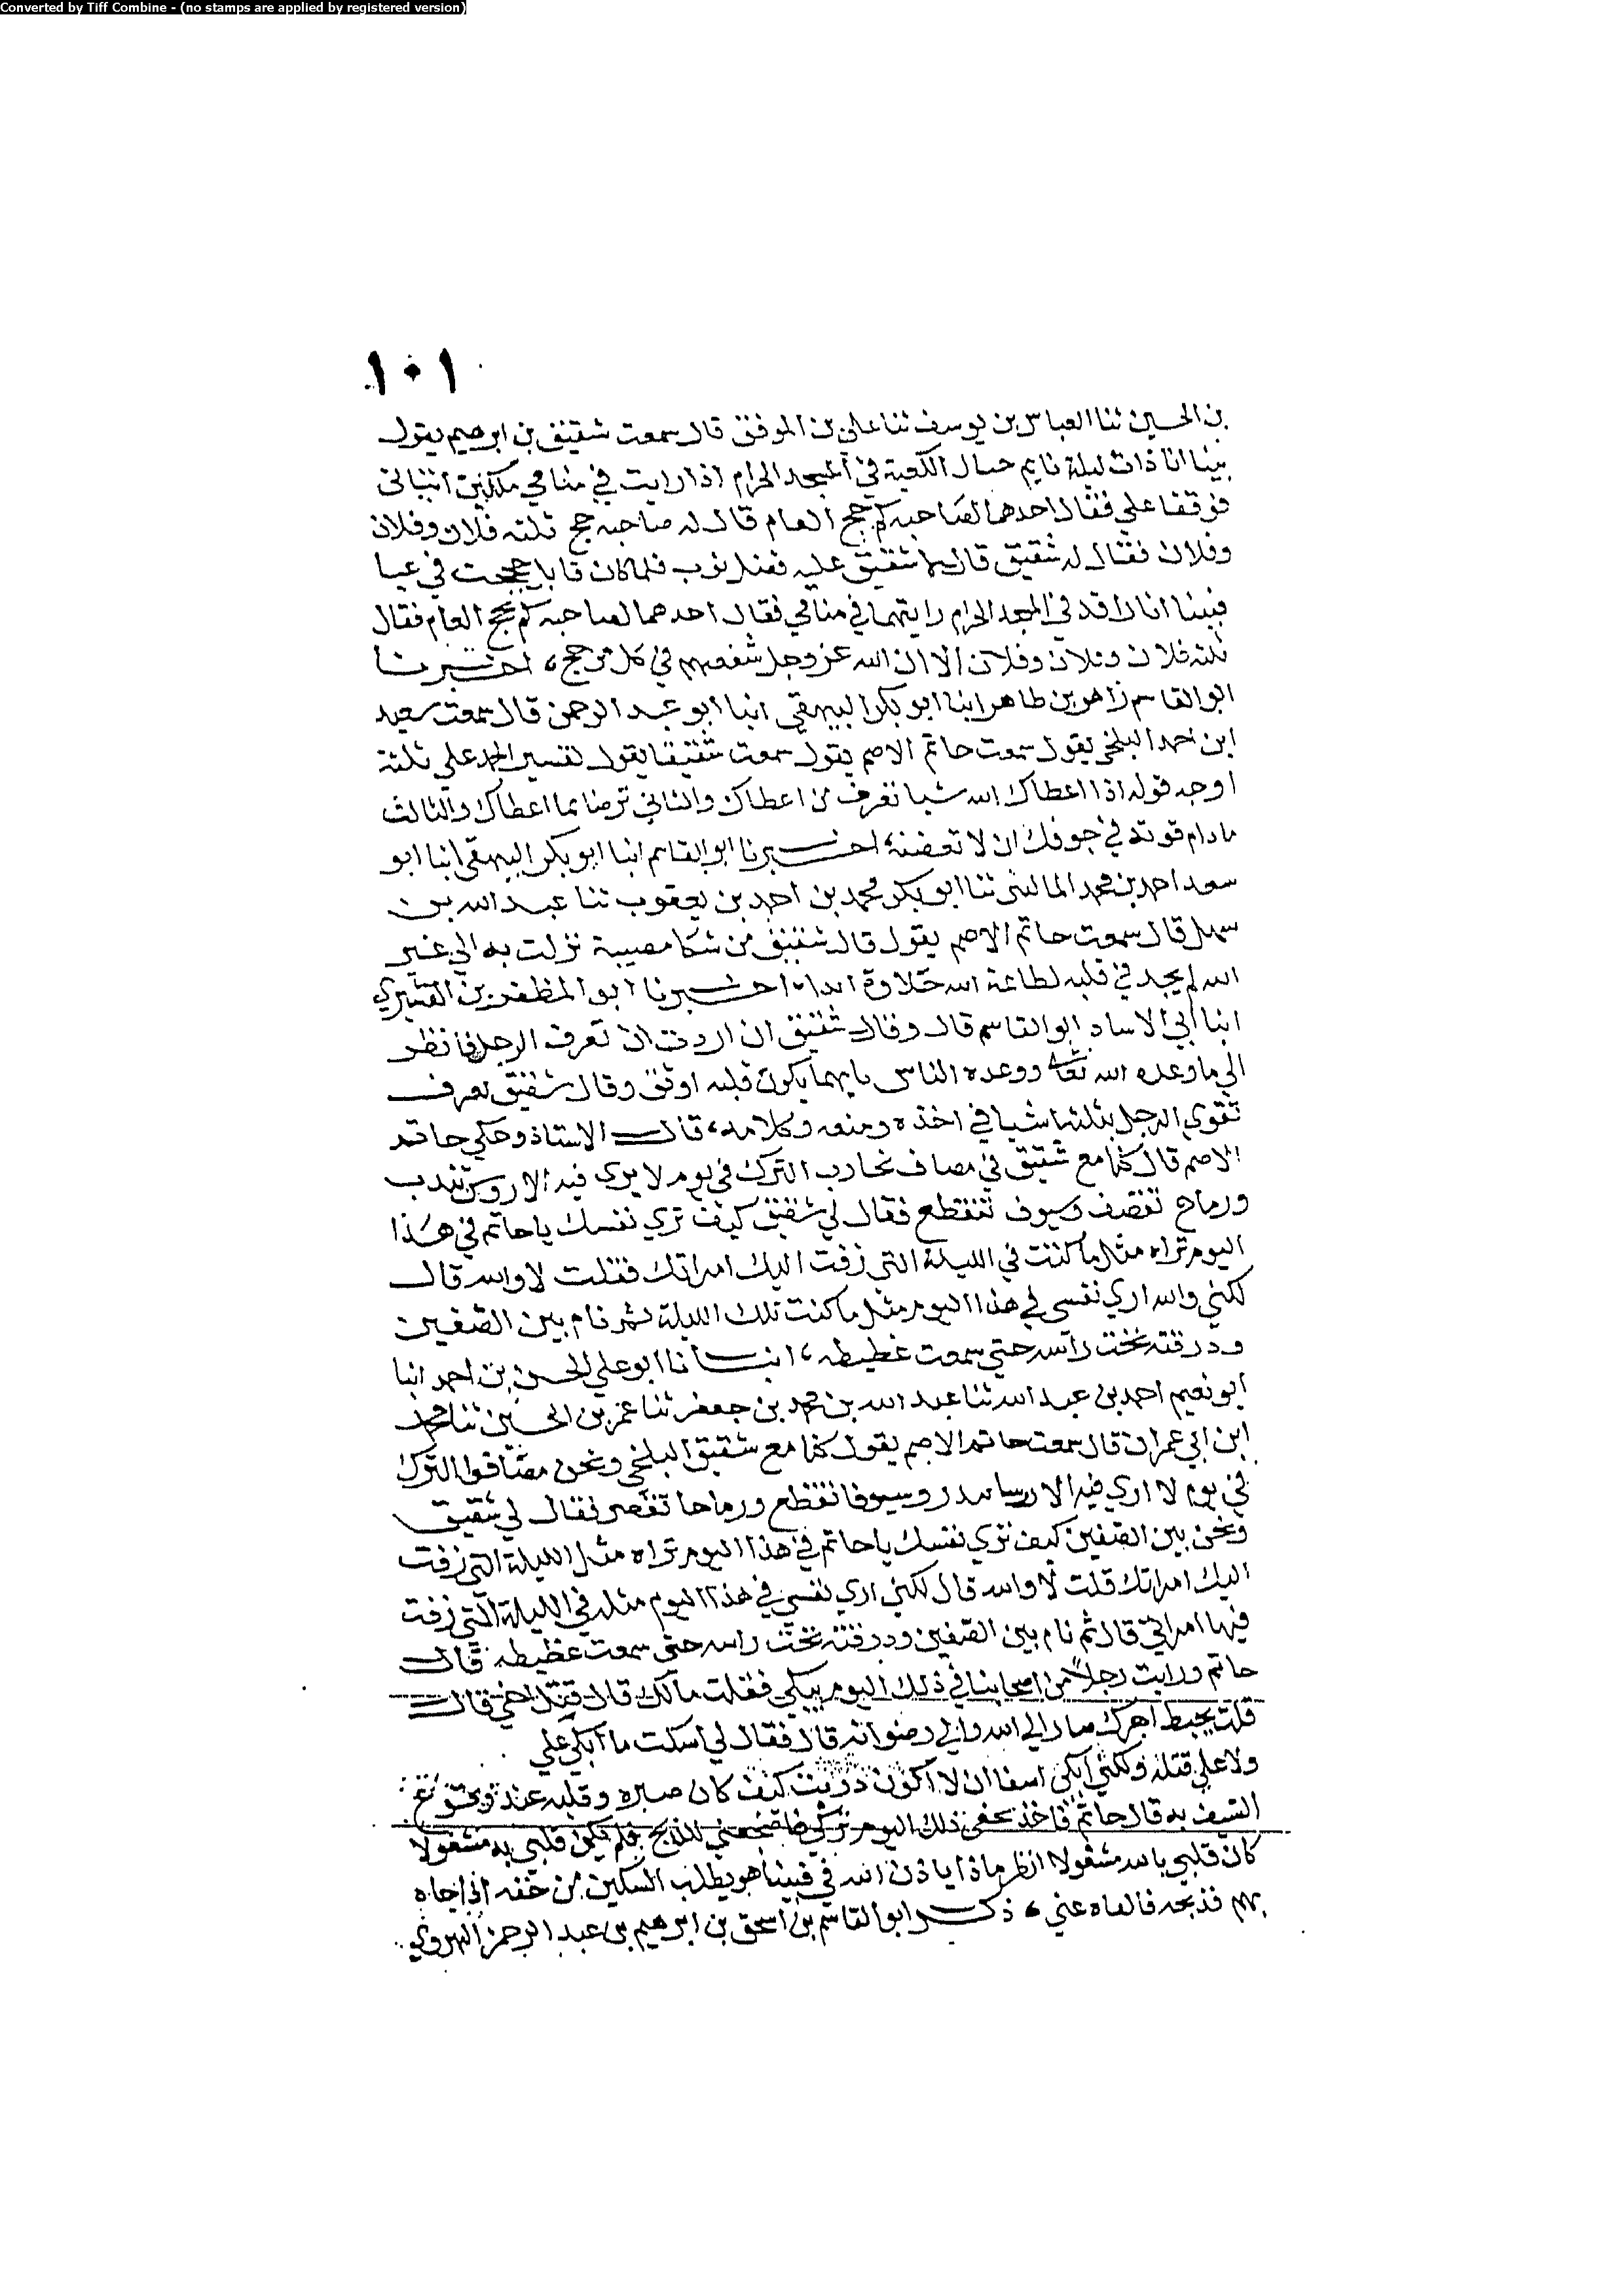 Converted by Tiff Combine - (no stamps are applied by registered version)
١٠١
بن الحسين ثنا العباس بن يوسف ثنا علي بن الموفق قال سمعت شقيق بن ابرهيم يقول
بينا انا ذات ليلة نايم حيال الكعبة في المسجد الحرام اذ رايت في منامي ملكين اتياني
فوقفا علي فقال احدهما لصاحبه كم حج العام قال له صاحبه حج ثلثه فلان وفلان
وفلان فقال له شقيق قال شقيق عليه فلما كان قابل حججت في عبا
فبينا انا راقد في المسجد الحرام رايتهما في منامي فقال احدهما لصاحبه كم حج العام فقال
ثلثه فلان وفلان وفلان الا ان الله عز وجل شفعهم في كل من حج، اخبرنا
ابو القاسم زاهر بن طاهر انبا ابو بكر البيهقي انبا ابو عبد الرحمن قال سمعت سعيد
ابن احمد البلخي يقول سمعت حاتم الاصم يقول سمعت شقيقا يقول تفسير الحمد علي ثلثة
اوجه قوله اذا اعطاك الله شيا تعرف من اعطاك والثاني ترضا بما اعطاك والثالث
مادام قوته في جوفك ان لا تعصيه، اخبرنا ابو القاسم انبا ابو بكر البيهقي انبا ابو
سعد احمد بن محمد الماليني ثنا ابو بكر محمد بن احمد بن يعقوب ثنا عبد الله بن
سهل قال سمعت حاتم الاصم يقول قال شقيق من شكا مصيبة نزلت به الي غير
الله لم يجد في قلبه لطاعة الله حلاوة ابدا، اخبرنا ابو المظفر بن القشيري
انبا ابي الاستاد ابو القاسم قال وقال شقيق ان اردت ان تعرف الرجل فانظر
الي ما وعده الله تعالى ووعده الناس بايهما يكون قلبه اوثق وقال شقيق تعرف
تقوي الرجل بثلثة اشيا في اخذه ومنعه وكلامه، قال الاستاذ وحكي حاتم
الاصم قال كنا مع شقيق في مصاف نحارب الترك في يوم لا يرى فيه الا روس تندر
ورماح تقصف وسيوف تنقطع فقال لي شقيق كيف تري نفسك يا حاتم في هذا
اليوم تراه مثل ما كنت في الليلة التي زفت اليك امراتك فقلت لا والله قال
لكني والله اري نفسي في هذا اليوم مثل ما كنت تلك الليلة ثم نام بين الصفين
ودرقته تحت راسه حتي سمعت غطيطه، انبانا ابو علي الحسن بن احمد انبا
ابو نعيم احمد بن عبد الله ثنا عبد الله بن محمد بن جعفر ثنا عمر بن الحسين ثنا محمد
ابن ابي عمران قال سمعت حاتم الاصم يقول كنا مع شقيق البلخي ونحن مصافوا الترك
في يوم لا اري فيه الا روسا تندر وسيوفا تنقطع ورماحا تقصر فقال لي شقيق
ونحن بين الصفين كيف تري نفسك يا حاتم في هذا اليوم تراه مثل الليلة التي زفت
اليك امراتك قلت لا والله قال لكني اري نفسي في هذا اليوم مثله في الليلة التي زفت
فيها امراتي قال ثم نام بين الصفين ودرقته تحت راسه حتي سمعت غطيطه قال
حاتم ورايت رجلاً من اصحابنا في ذلك اليوم يبكي فقلت مالك قال قتل اخي قال
قلت يحبط اجرك صار الي الله والي رضوانه قال فقال لي اسكت ما ابكي علي
ولا علي قتله ولكني ابكي اسفا ان لا اكون دريت كيف كان صبره وقلبه عند وقوع
السيف به قال حاتم فاخذ بحفي ذلك اليوم تركي فاضجعني للذبح فلم يكن قلبي به مشغولا
كان قلبي بالله مشغولا انظر ماذا ياذن الله في فبينا هو يطلب السكين من خفه اذ جاه
سهم فذبحه فالقاه عني، ذكر ابو القاسم بن اسحق بن ابرهيم بن عبد الرحمن الهروي